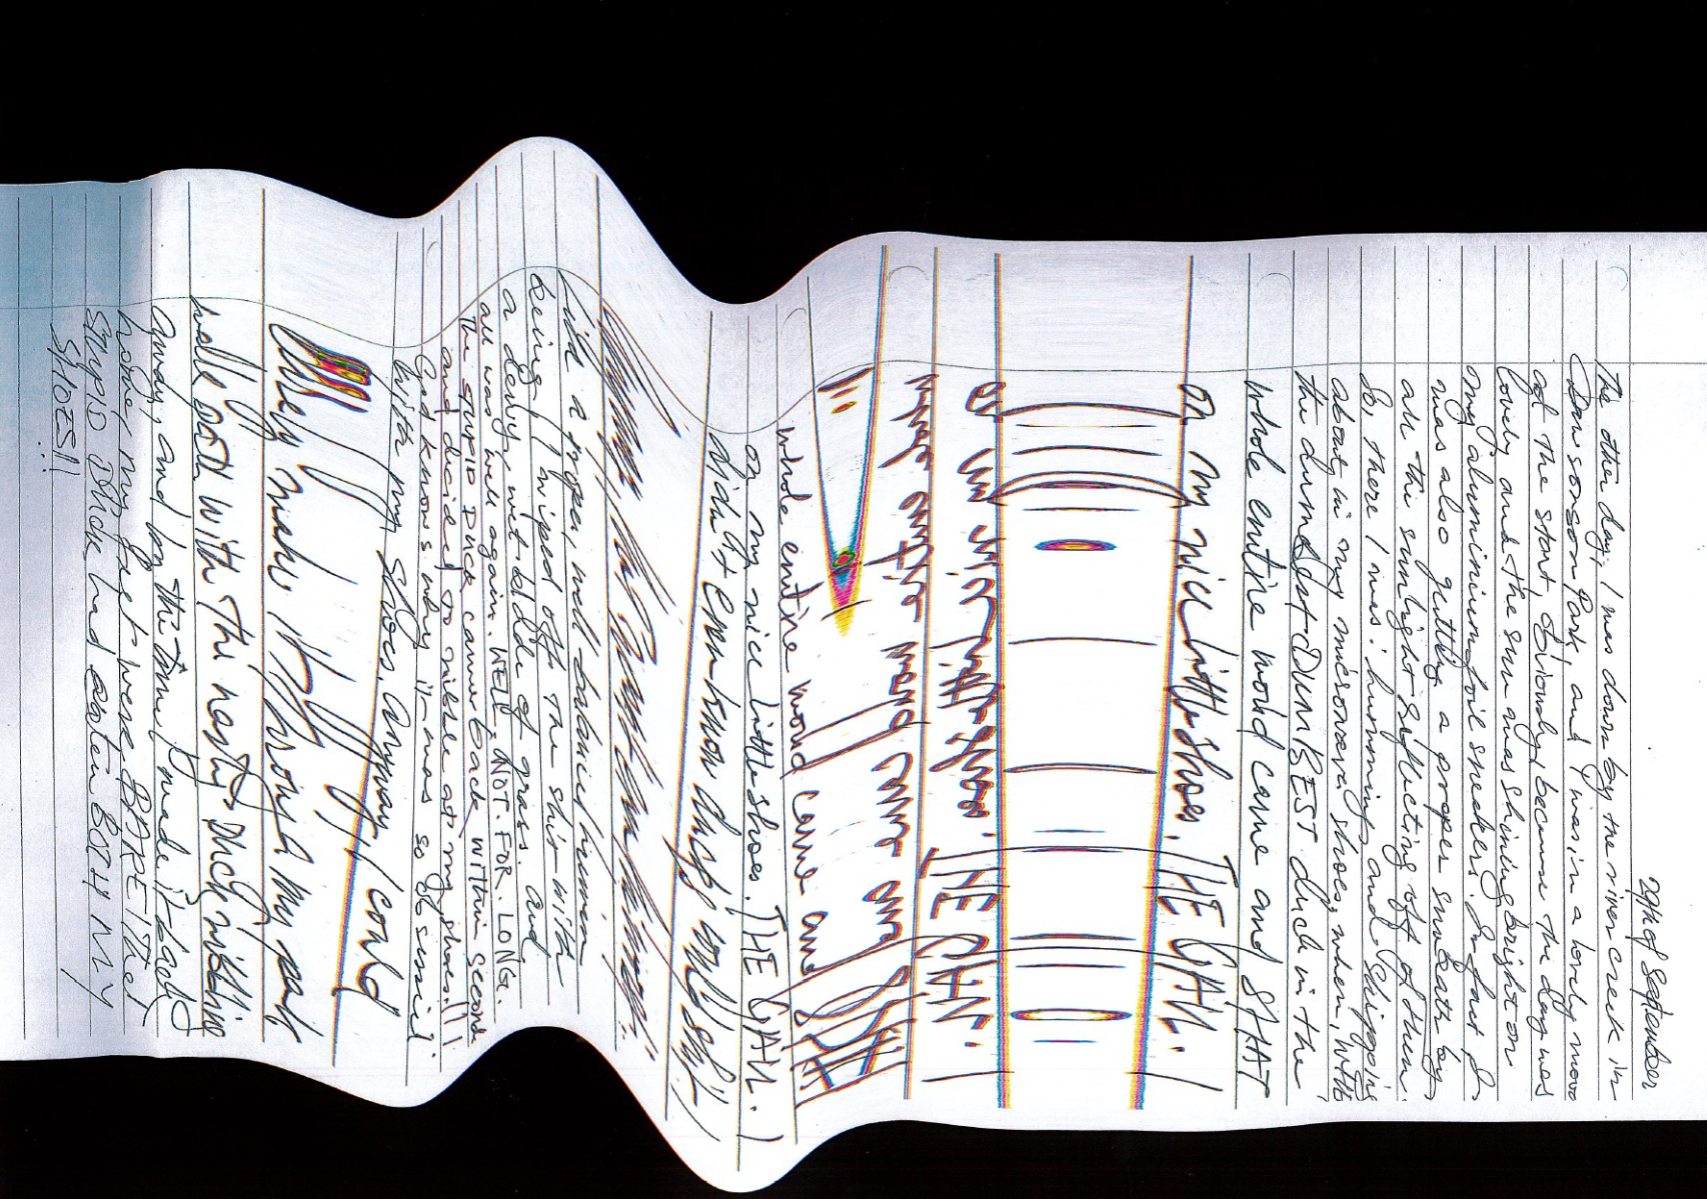 29th of September
The other day, I was down by the river creek in
Dawsonson Park, and I was in a lovely mood
got the start, obviously, because the day was
lovely and the sun was shining bright on
my aluminium foil sneakers. In fact I
was also getting a proper sunbath by
all the sunlight reflecting off of them.
So, there I was: humming and skipping
about in my microwave shoes, when, with
the dumbdest DUMBEST duck in the
whole entire world came and SHAT
on my nice little shoes. THE GAL.
on my nice little shoes. THE GAL.
whole entire world came and
whole entire world came and SHAT
on my nice little shoes. THE GAL. I
didn't even know ducks could shit!
like a proper, well behaved human
being, I wiped off the shit with
a dewy, wet blade of grass. and
all was well again. WELL, NOT. FOR. LONG.
The STUPID DUCK came back within seconds
and decided to nibble at my shoes!!!
God knows why it was so obsessed
with my shoes. Anyway, I could
barely make it through my park
walk with the nasty DUCK nibbling
away, and by the time I made it back
home, my feet were BARE! The
STUPID DUCK had eaten BOTH MY
SHOES!!